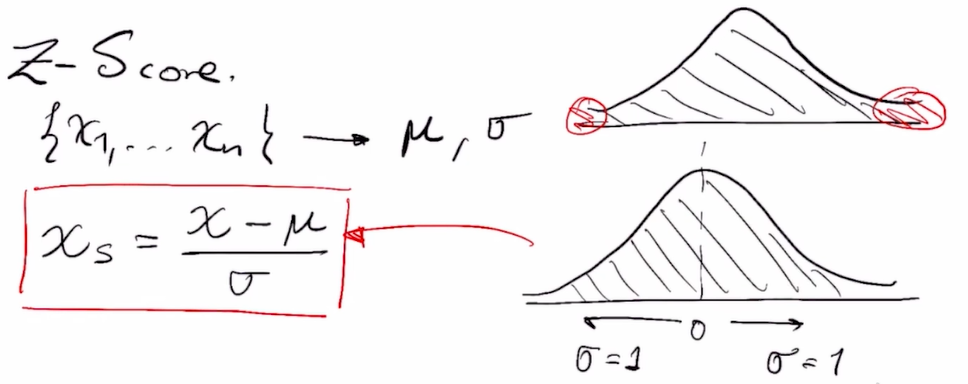 Z-Score.
{x1,... xn} → μ, σ
xs = x - μ / σ
0
σ=1 σ=1